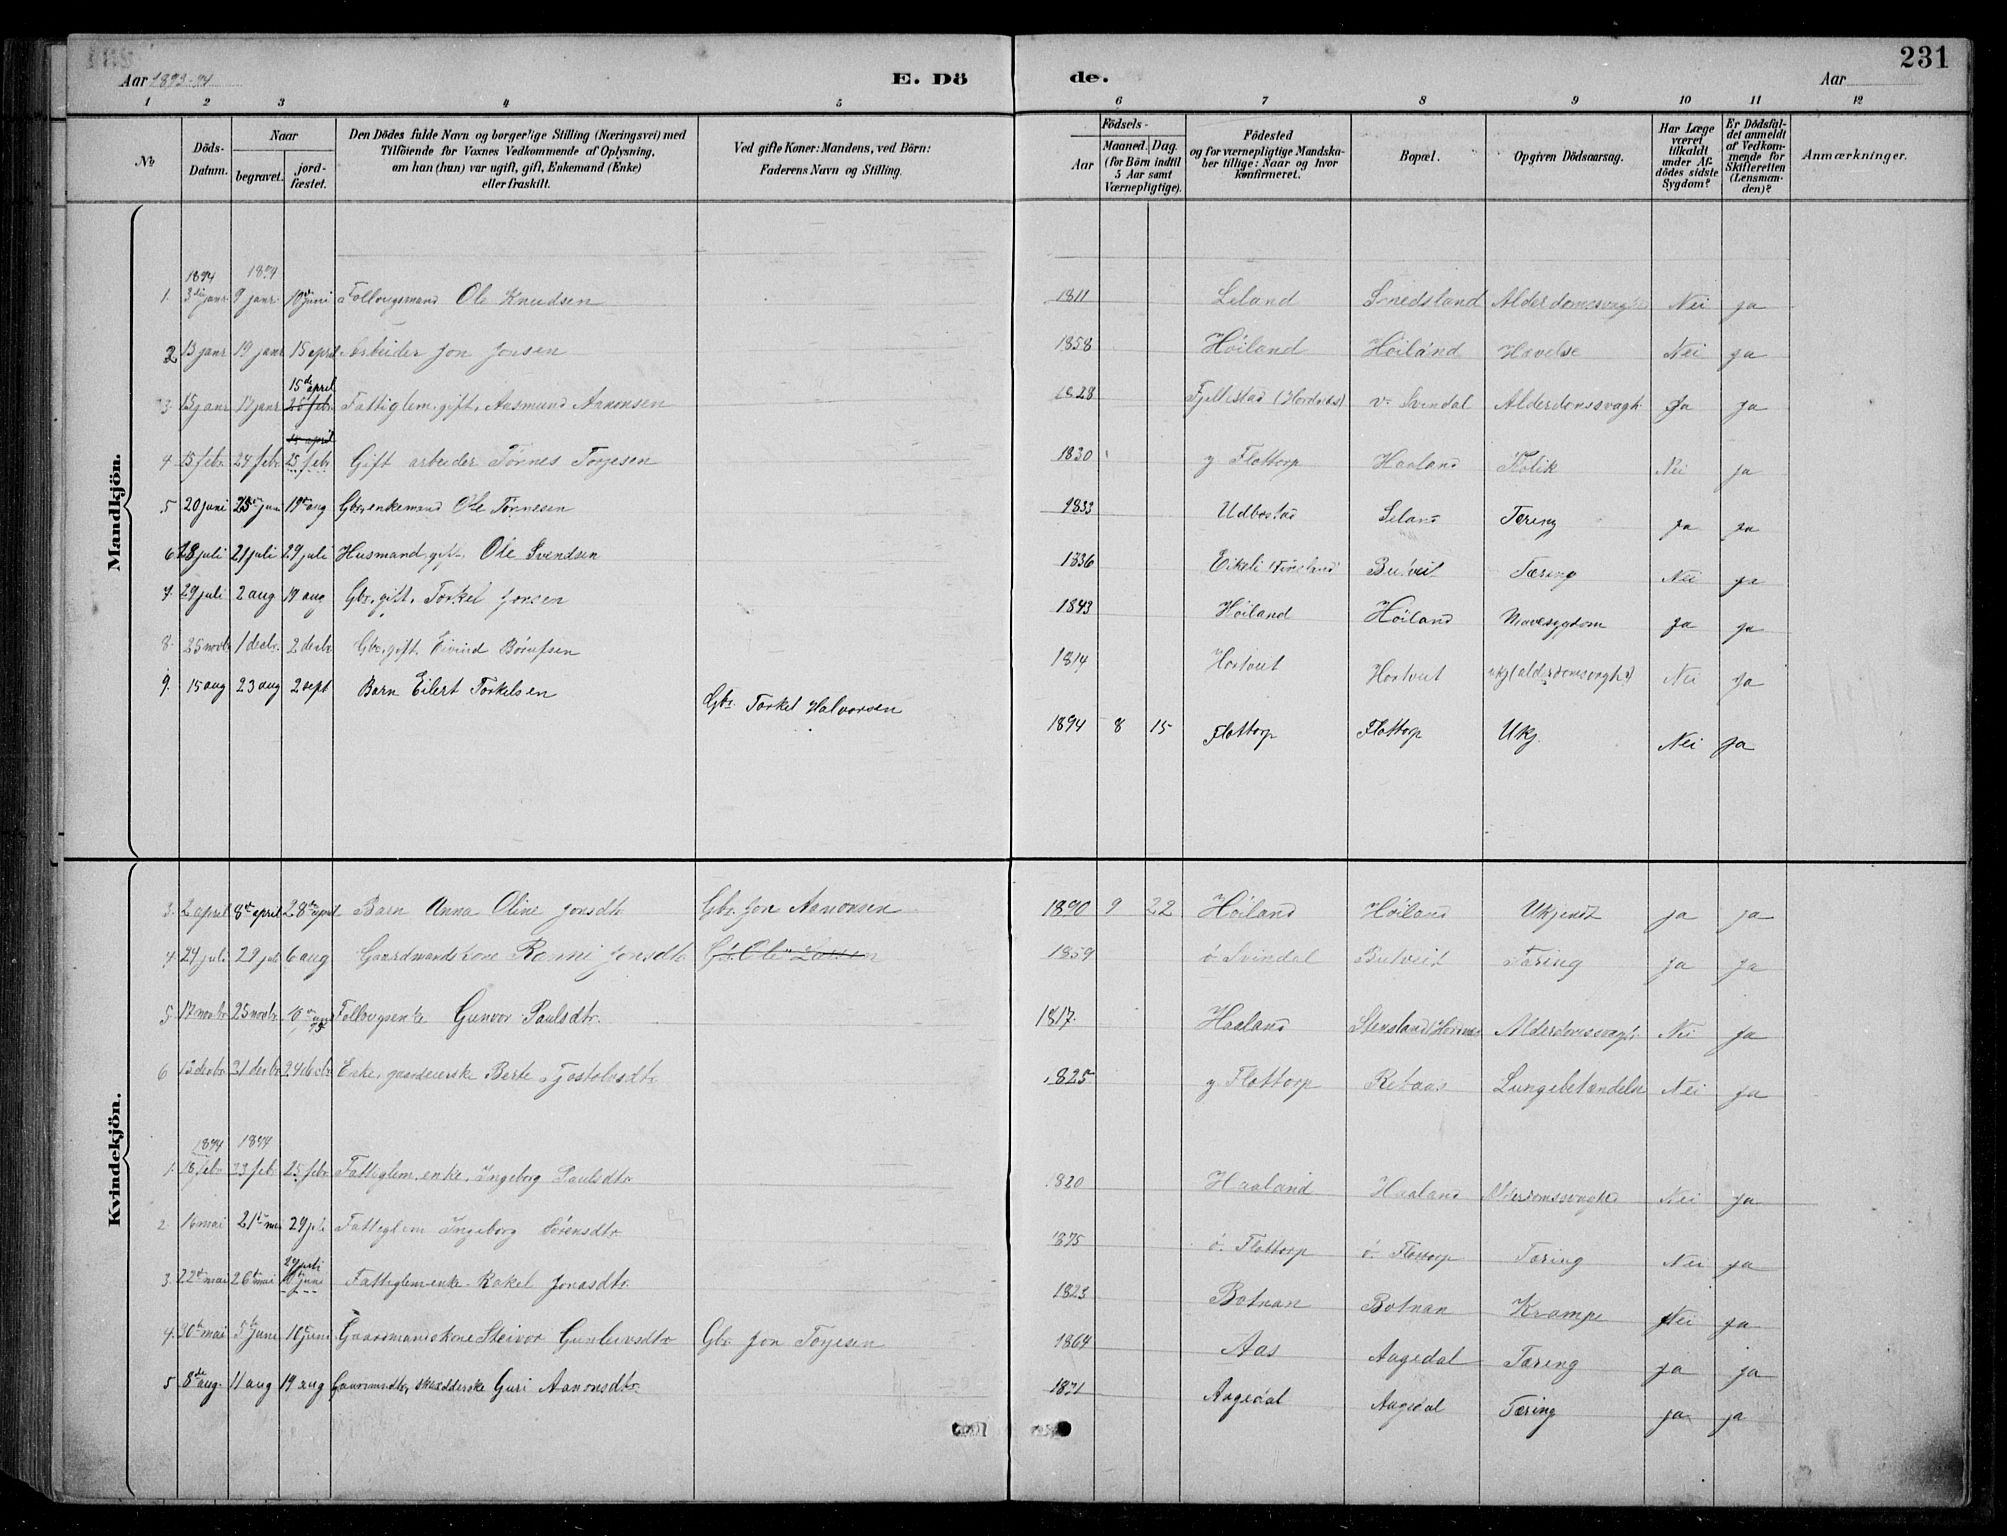 231
Aar 1893-94 E. Dö de. Aar
1 2 3 4 5 6 7 8 9 10 11 12
No
Döds-Datum.
Naar
begravet.
jord-fæstet.
Den Dödes fulde Navn og borgerlige Stilling (Næringsvei) med
Tilföiende for Voxnes Vedkommende af Oplysning,
om han (hun) var ugift, gift, Enkemand (Enke)
eller fraskilt.
Ved gifte Koner: Mandens, ved Börn:
Faderens Navn og Stilling.
Födsels-
Aar
Maaned. Dag.
(for Börn indtil
5 Aar samt
Værnepligtige).
Födested
og for værnepligtige Mandska-
ber tillige: Naar og hvor
konfirmeret.
Bopæl.
Opgiven Dödsaarsag.
Har Læge
været
tilkaldt
under Af-
dödes sidste
Sygdom?
Er Dödsfal-
det anmeldt
af Vedkom-
mende for
Skifteretten
(Lensman-
den)?
Anmærkninger.
Mandkjön.
1894 1894
1. 3die janr. 9 janr. 10de juni Follougsmand Ole Knudsen 1811 Leland Snedsland Alderdomssvagh Nei ja
2 13 janr 19 janr 15 april Arbeider Jon Jonsen 1858 Höiland Höiland Hævelse Nei ja
15de april
3 15 janr 17 janr 25 febr. Fattiglem, gift, Aasmund Aanonsen 1828 Fjellestad (Hordnæs) v. Svendal Alderdomssvagh Ja ja
15 april
4 15 febr. 24 febr 25 febr Gift arbeider Tönnes Torjesen 1830 y Flottorp Haaland Kolik Nei ja
5 20 juni 25de juni 19de aug Gbr, enkemand Ole Tönnesen 1833 Udbostad Leland Tæring ja ja
6 18 juli 21 juli 29 juli Husmand, gift. Ole Svendsen 1836 Eikeli Butveit Tæring Nei ja
7 29 juli 2 aug 19 aug Gbr, gift, Torkel Jonsen 1843 Höiland Höiland Mavesygdom ja ja
8. 25 novbr 1 decbr. 2 decbr. Gbr, gift Eivind Börufsen 1814 Hortveit Hortveit ukj (alderdomssvagh?) Nei ja
9. 15 aug 23 aug 2 sept Barn Eilert Torkelsen Gbr. Torkel Halvorsen 1894 8 15 Flottorp Flottorp Ukj. Nei ja
Kvindekjön.
3. 2 april 8de april 28de april Barn Anna Oline Jonsdtr Gbr. Jon Aanonsen 1890 9 22 Höiland Höiland Ukjendt ja ja
4. 24 juli 29 juli 6 aug Gaardmandskone Ranni Jonsdtr Gb. Ole Larsen 1859 ö. Svindal Butveit Tæring ja ja
5. 17 novbr 25 novbr. Follougsenke Gunvor Paulsdtr. 1817. Haaland Stensland (Hornnes) Alderdomssvagh. Nei ja
6 13 decbr 21 decbr 24 decbr Enke, gaardeierske Berte Tjostolvsdtr 1825 y. Flottorp Retaas Lungebetændelse Nei ja
1894 1894
1. 18 febr 23 feb 25 febr Fattiglem, enke, Ingeborg Paulsdtr 1820 Haaland Haaland Alderdomssvaghed Nei ja
2 16 mai 21de mai 29 juli Fattiglem Ingeborg Sörensdtr 1875 ö. Flottorp ö. Flottorp Tæring Nei ja
29 juli
3. 22de mai 26de mai 10de juni Fattiglem enke Rakel Jonasdtr. 1823 Botnan Botnan Krampe Nei ja
4. 30te mai 5te juni 10 juni Gaardmandskone Steivor Gunleivsdtr Gbr Jon Torjesen 1864 Aas Aagedal Tæring ja ja
5 8de aug. 11 aug 19 aug Gaarmandtr, skrædderske Guri Aanonsdtr 1871 Aagedal Aagedal Tæring ja ja